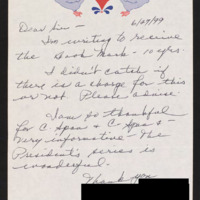 6/09/99
Dear Sir -
I'm writing to receive
the Book Mark - 10 yrs.
I didn't catch if
there is a charge for this
or not. Please advise
I am so thankful
for C. Span & C. Span 2 -
Very informative - The
President's series is
wonderful.
Thank you